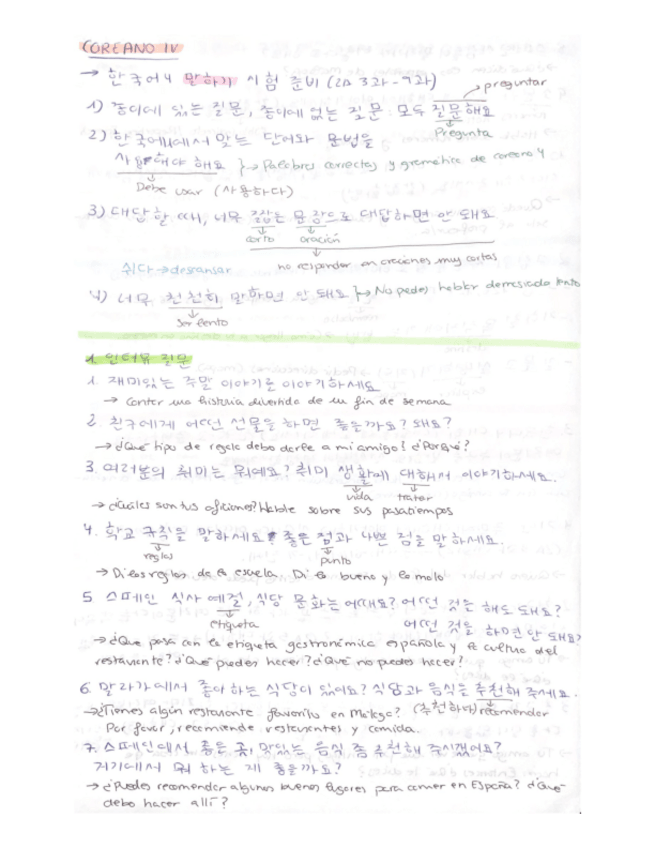 COREANO IV
→ 한국어4 말하기 시험 준비 (2A 3과-9과)
→ preguntar
1) 종이에 있는 질문, 종이에 없는 질문 모두 질문해요
Pregunta
2) 한국어4에서 맞는 단어와 문법을
사용해야 해요 }→ Palabras correctas y gramática de coreano 4
Debe usar (사용하다)
3) 대답할 때, 너무 짧은 문장으로 대답하면 안 돼요
corto oración
쉬다 → descansar
no responder en oraciones muy cortas
4) 너무 천천히 말하면 안 돼요 }→ No puedes hablar demasiado lento
ser lento
1. 인터뷰 질문
1. 재미있는 주말 이야기를 이야기하세요
→ Contar una historia divertida de un fin de semana
2. 친구에게 어떤 선물을 하면 좋을까요? 왜요?
→ ¿Qué tipo de regalo debo darle a mi amigo? ¿Porqué?
3. 여러분의 취미는 뭐예요? 취미 생활에 대해서 이야기하세요.
vida tratar
→ ¿Cuáles son tus aficiones? Hable sobre sus pasatiempos
4. 학교 규칙을 말하세요. 좋은 점과 나쁜 점을 말하세요.
reglas punto
→ Di las reglas de la escuela. Di lo bueno y lo malo
5 스페인 식사 예절, 식당 문화는 어때요? 어떤 것은 해도 돼요?
etiqueta 어떤 것을 하면 안 돼요?
→ ¿Que pasa con la etiqueta gastronómica española y la cultura del
restaurante? ¿Qué puedes hacer? ¿Qué no puedes hacer?
6. 말라가에서 좋아하는 식당이 있어요? 식당과 음식을 추천해 주세요.
→ ¿Tienes algún restaurante favorito en Málaga? (추천하다) recomendar
Por favor, recomiende restaurantes y comida.
7. 스페인에서 좋은 곳, 맛있는 음식 좀 추천해 주시겠어요?
거기에서 뭐 하는 게 좋을까요?
→ ¿Puedes recomendar algunos buenos lugares para comer en España? ¿Qué
debo hacer allí?